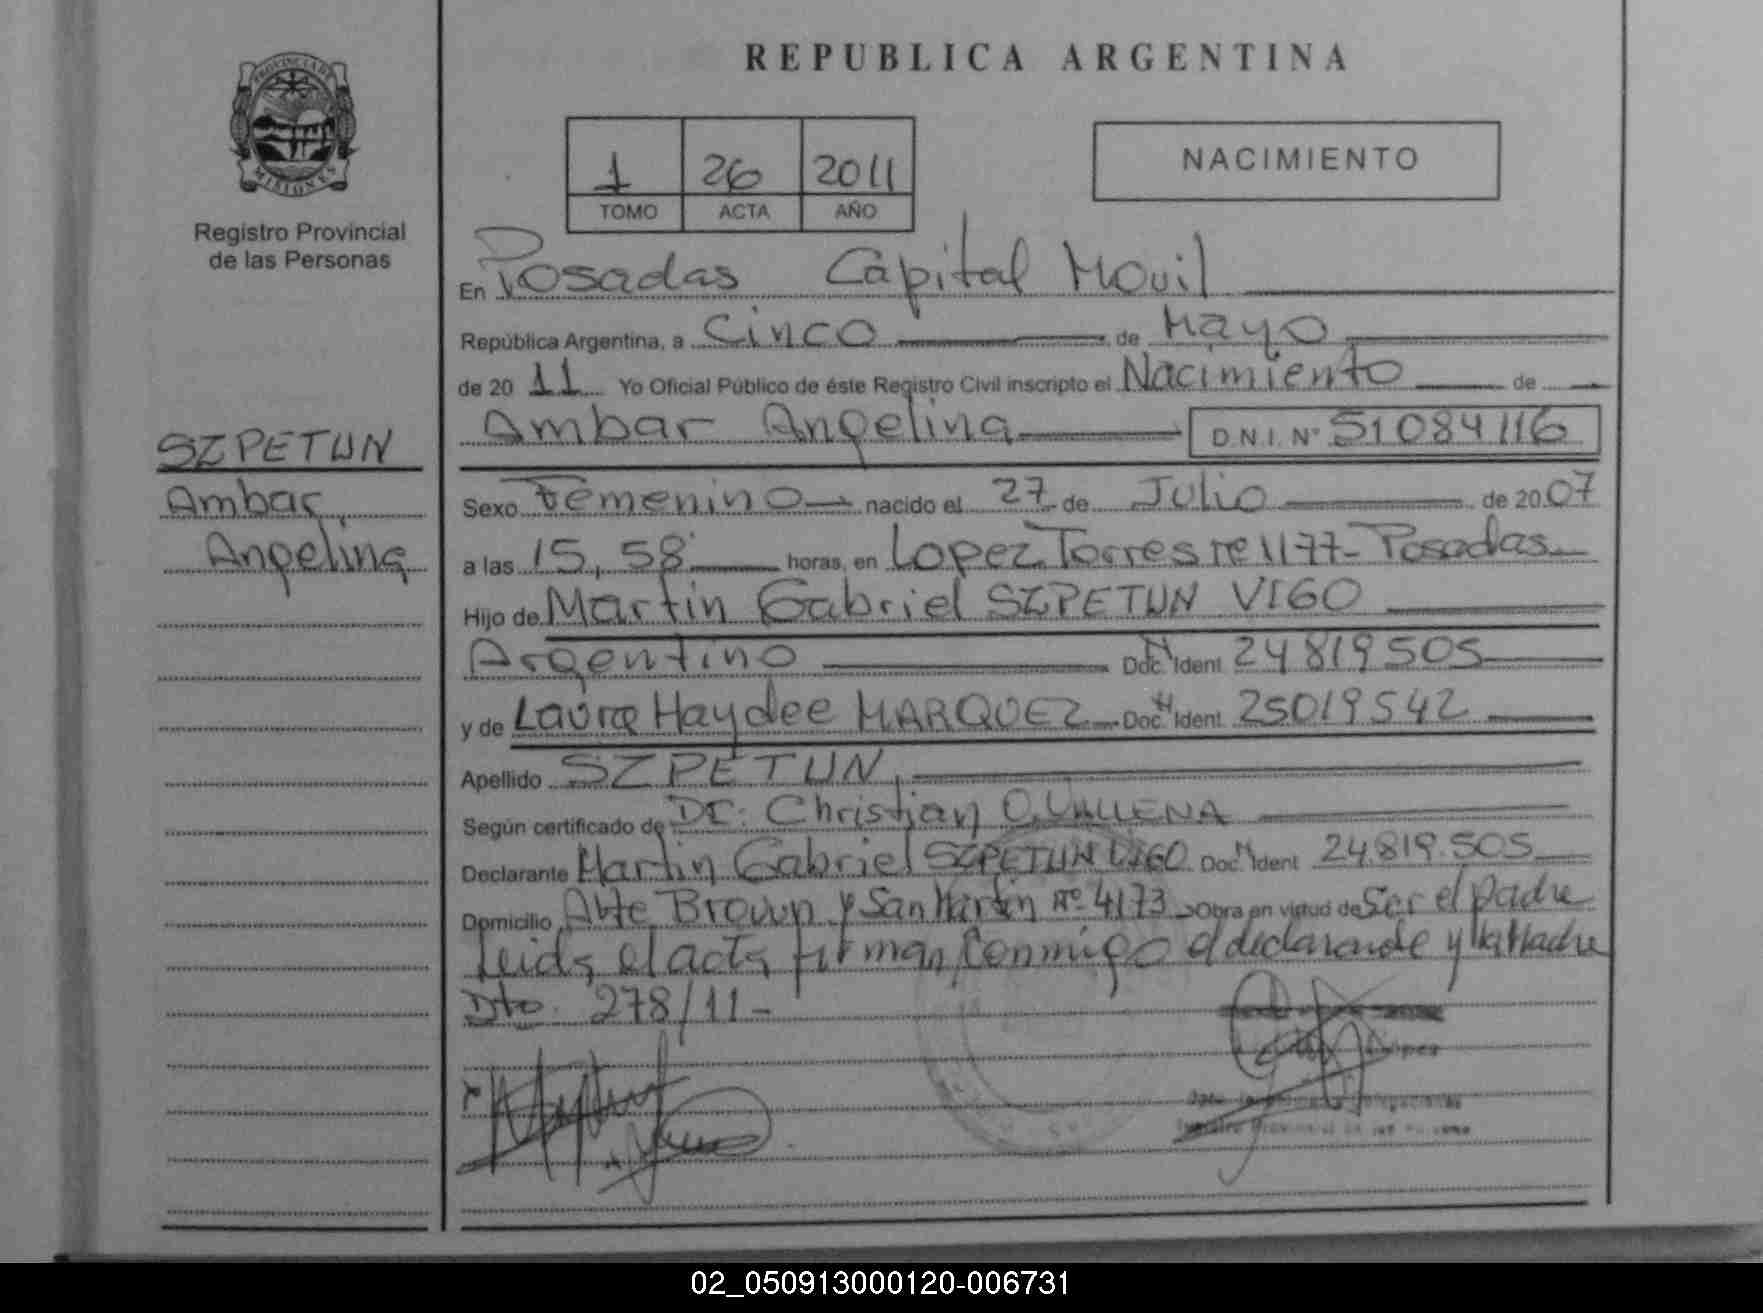 PROVINCIA DE
MISIONES
Registro Provincial
de las Personas
SZPETUN
Ambar,
Angelina
REPUBLICA ARGENTINA
1 26 2011
TOMO ACTA AÑO
NACIMIENTO
En Posadas Capital Movil
República Argentina, a Cinco de Mayo
de 20 11 Yo Oficial Público de éste Registro Civil inscripto el Nacimiento de
Ambar Angelina D.N.I. Nº 51084116
Sexo Femenino nacido el 27 de Julio de 20 07
a las 15,58 horas, en Lopez Torres Nº 1177- Posadas
Hijo de Martin Gabriel SZPETUN VIGO
Argentino Doc. N Ident 24819505
y de Laura Haydee MARQUEZ Doc. N Ident 25019542
Apellido SZPETUN
Según certificado de Dr: Christian O. VALLENA
Declarante Martin Gabriel SZPETUN VIGO Doc. N Ident 24.819.505
Domicilio Alte Brown y San Martin Nº 4173 Obra en virtud de Ser el padre
Leida el acta firman conmigo el declarante y la Madre
Dto. 278/11-
02_050913000120-006731